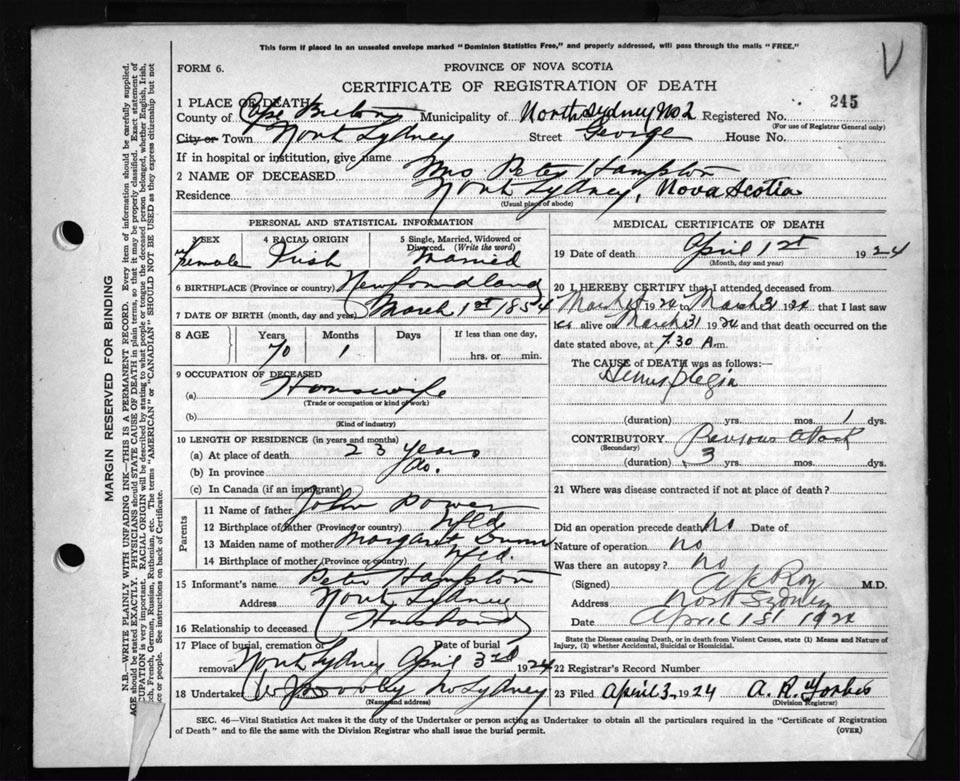 This form if placed in an unsealed envelope marked "Dominion Statistics Free," and properly addressed, will pass through the mails "FREE."
V
FORM 6.
PROVINCE OF NOVA SCOTIA
CERTIFICATE OF REGISTRATION OF DEATH
245
1 PLACE OF DEATH
County of Cape Breton Municipality of North Sydney No 2 Registered No.
(For use of Registrar General only)
City or Town North Sydney Street George House No.
If in hospital or institution, give name
2 NAME OF DECEASED Mrs Peter Hampton
Residence North Sydney, Nova Scotia
(Usual place of abode)
PERSONAL AND STATISTICAL INFORMATION
3 SEX 4 RACIAL ORIGIN 5 Single, Married, Widowed or Divorced. (Write the word)
Female Irish Married
6 BIRTHPLACE (Province or country) Newfoundland
7 DATE OF BIRTH (month, day and year) March 1st 1854
8 AGE Years Months Days If less than one day,
70 1 hrs. or min.
9 OCCUPATION OF DECEASED
(a) Housewife
(Trade or occupation or kind of work)
(b)
(Kind of industry)
10 LENGTH OF RESIDENCE (in years and months)
(a) At place of death 23 years
(b) In province do.
(c) In Canada (if an immigrant)
Parents
11 Name of father John Power
12 Birthplace of father (Province or country) Nfld
13 Maiden name of mother Margaret
14 Birthplace of mother (Province or country) Nfld.
15 Informant's name Peter Hampton
Address North Sydney
16 Relationship to deceased (Husband)
17 Place of burial, cremation or removal North Sydney Date of burial April 3rd 1924
18 Undertaker W J Dooley No Sydney
(Name and address)
MEDICAL CERTIFICATE OF DEATH
19 Date of death April 1st 1924
(Month, day and year)
20 I HEREBY CERTIFY that I attended deceased from
March 1924 to March 31 1924 that I last saw
alive on March 31 1924 and that death occurred on
date stated above, at 7.30 A.m.
The CAUSE of DEATH was as follows:—
(duration) yrs. mos. 1 dys.
CONTRIBUTORY Previous attack
(Secondary)
(duration) 3 yrs. mos. dys.
21 Where was disease contracted if not at place of death?
Did an operation precede death? No Date of
Nature of operation no
Was there an autopsy? No
(Signed) Roy M.D.
Address North Sydney
Date April 1st 1924
State the Disease causing Death, or in death from Violent Causes, state (1) Means and Nature of Injury, (2) whether Accidental, Suicidal or Homicidal.
22 Registrar's Record Number
23 Filed April 3, 1924 A. R. Forbes
(Division Registrar)
SEC. 46—Vital Statistics Act makes it the duty of the Undertaker or person acting as Undertaker to obtain all the particulars required in the "Certificate of Registration
of Death" and to file the same with the Division Registrar who shall issue the burial permit. (OVER)
MARGIN RESERVED FOR BINDING
N.B.—WRITE PLAINLY, WITH UNFADING INK—THIS IS A PERMANENT RECORD. Every item of information should be carefully supplied.
AGE should be stated EXACTLY. PHYSICIANS should STATE CAUSE OF DEATH in plain terms, so that it may be properly classified. Exact statement of
UPATION is very important. RACIAL ORIGIN will be described by stating to what people or tongue the deceased person belonged, whether English, Irish,
ch, French, German, Russian, Ruthenian, etc. The terms "AMERICAN" or "CANADIAN" SHOULD NOT BE USED as they express citizenship but not
ce or people. See instructions on back of Certificate.